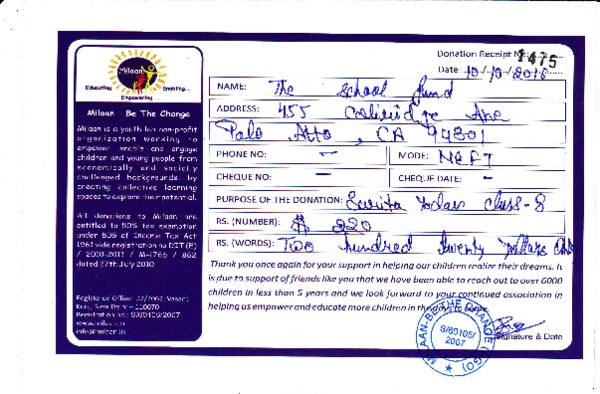 Milaan
Educating Enabling...
Empowering
Milaan Be The Change
Milaan is a youth led non-profit
organization working to
empower enable and engage
children and young people from
economically and socially
challenged backgrounds, by
creating collective learning
spaces to explore their potential.
All donations to Milaan are
entitled to 50% tax exemption
under 80G of Income Tax Act
1961 vide registration no DIT (E)
/ 2010-2011 / M-1766 / 862
dated 27th July 2010
Registration no.: S/60105/2007
Donation Receipt N 1475
Date: 10/10/2015
NAME: The School fund
ADDRESS: 455 Ave
Palo Alto, CA 94301
PHONE NO: - MODE: NEFT
CHEQUE NO: - CHEQUE DATE: -
PURPOSE OF THE DONATION: Sarita Yadav class-8
RS. (NUMBER): $ 220
RS. (WORDS): Two hundred twenty dollars only
Thank you once again for your support in helping our children realize their dreams. It
is due to support of friends like you that we have been able to reach out to over 6000
children in less than 5 years and we look forward to your continued association in
helping us empower and educate more children in the days to come.
MILAAN-BE THE CHANGE (NGO)
S/60105/
2007
Signature & Date